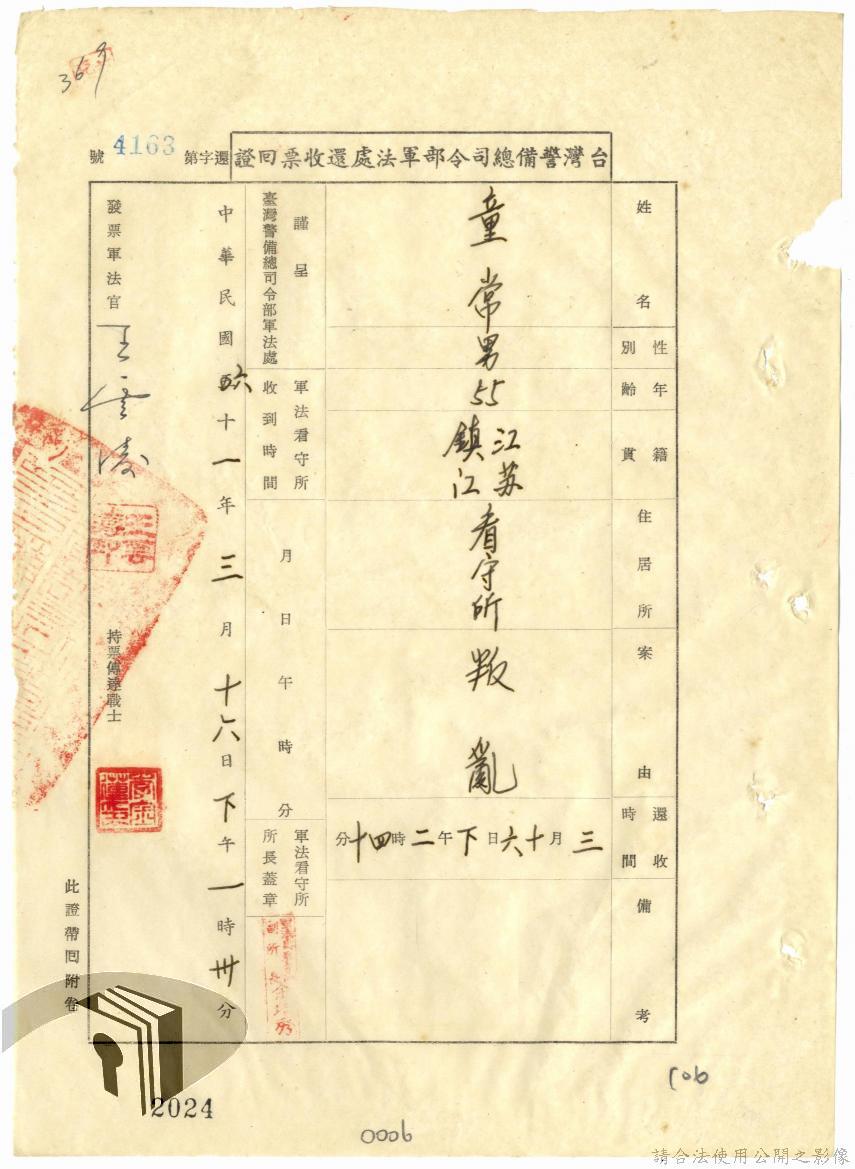 369
台灣警備總司令部軍法處還收票回證
還字第 4163 號
姓名
童常
性別
男
年齡
55
籍貫
江苏
鎮江
住居所
看守所
案由
叛亂
還收時間
三月十六日下午二時四十分
備考
謹呈
臺灣警備總司令部軍法處
軍法看守所
收到時間
月日午時分
軍法看守所
所長蓋章
中華民國五十六年三月十六日下午一時卅分
發票軍法官
王雲濤
持票傳達戰士
此證帶回附卷
106
2024
0006
請合法使用公開之影像